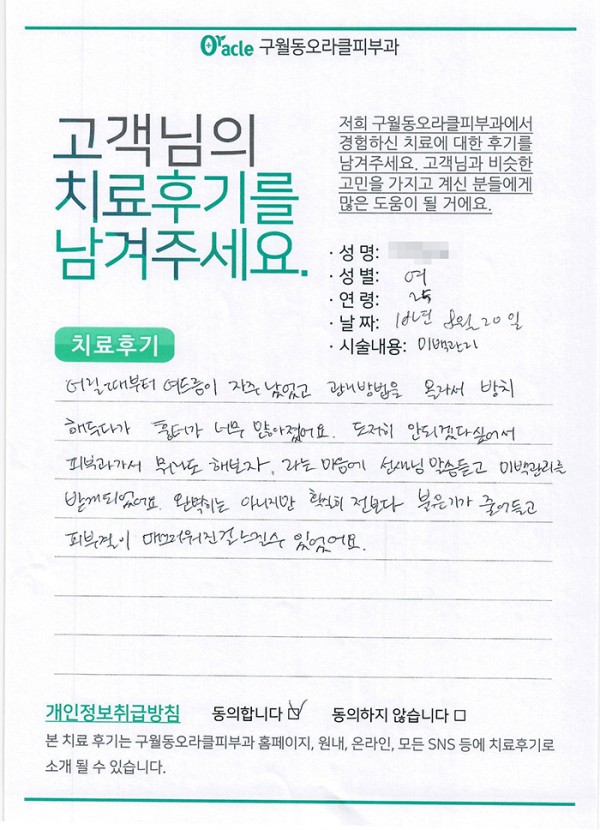 Oracle 구월동오라클피부과
고객님의
치료후기를
남겨주세요.
저희 구월동오라클피부과에서
경험하신 치료에 대한 후기를
남겨주세요. 고객님과 비슷한
고민을 가지고 계신 분들에게
많은 도움이 될 거에요.
· 성 명:
· 성 별: 여
· 연 령: 25
· 날 짜: 16년 8월 20일
· 시술내용: 미백관리
치료후기
어릴때부터 여드름이 자주 났었고 관리방법을 몰라서 방치
해두다가 흉터가 너무 많아졌어요. 도저히 안되겠다싶어서
피부과가서 뭐라도 해보자, 라는 마음에 선생님 말씀듣고 미백관리를
받게되었어요. 완벽히는 아니지만 확실히 전보다 붉은기가 줄어들고
피부결이 매끄러워진걸 느낄수 있었어요.
개인정보취급방침 동의합니다 ☑ 동의하지 않습니다 □
본 치료 후기는 구월동오라클피부과 홈페이지, 원내, 온라인, 모든 SNS 등에 치료후기로
소개 될 수 있습니다.